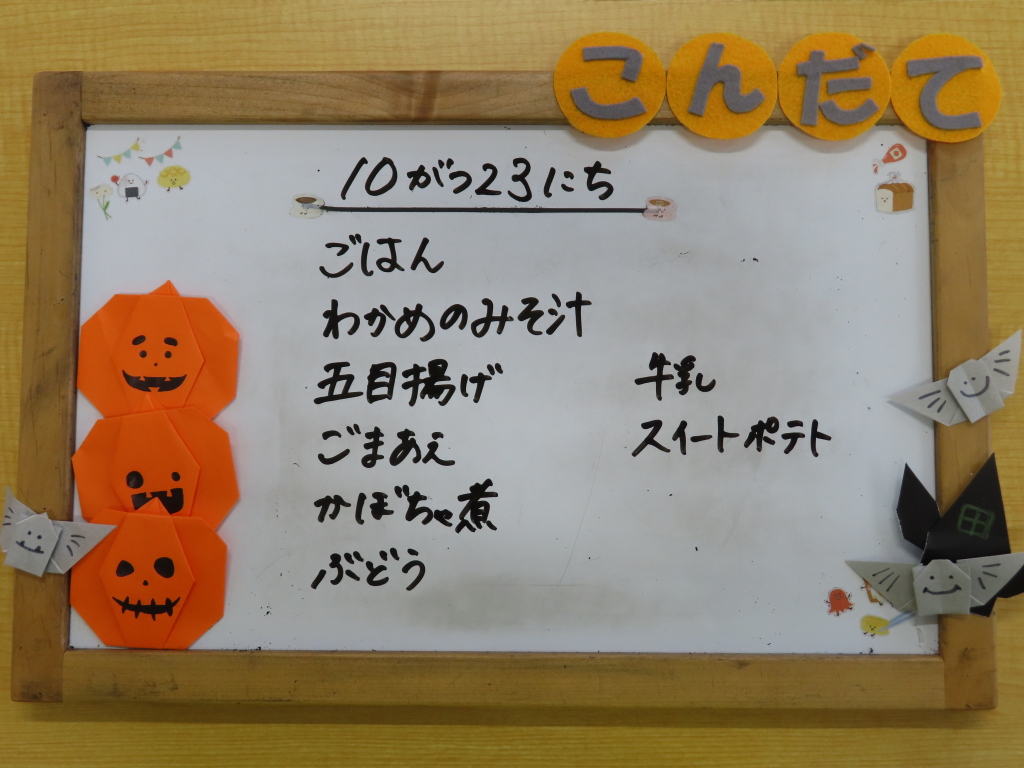 こんだて
10がつ23にち
ごはん
わかめのみそ汁
五目揚げ
ごまあえ
かぼちゃ煮
ぶどう
牛乳
スイートポテト